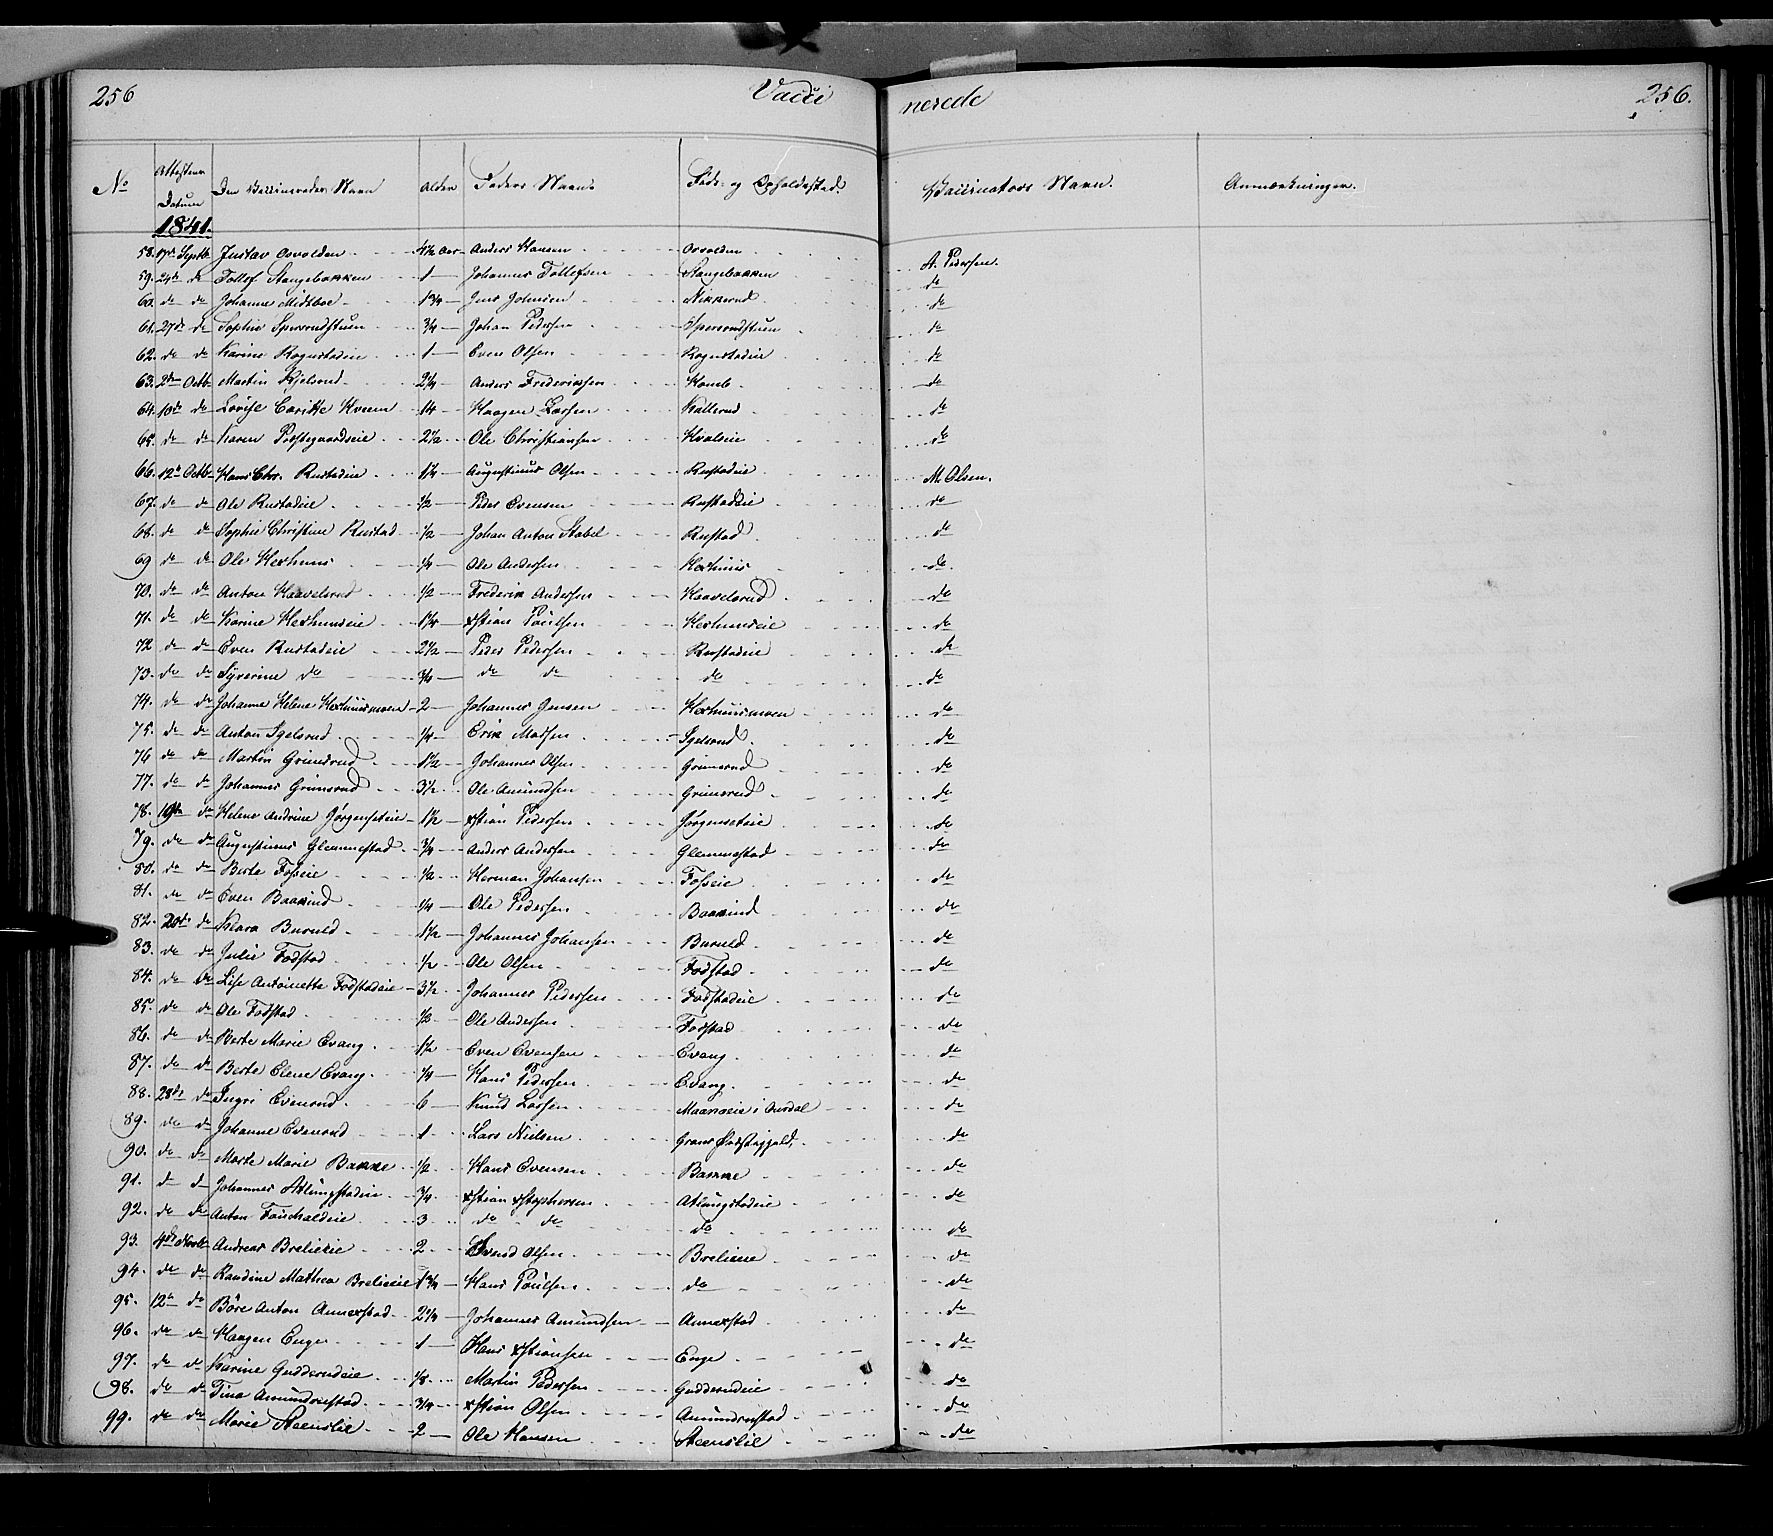 256 Vacci nerede 256.
No Attestens Datum Den Vaccineredes Navn Alder Faders Navn Føde- og Opholdssted. Vaccinators Navn. Anmærkninger.
1841.
58. 17de Septbr Gustav Osvolden 4½ Aar Anders Hansen Osvolden A. Pedersen.
59. 24de do Tollef Stangebakken 1 Johannes Tollefsen Stangebakken do
60. do do Johanne Midtboe 1¾ Jens Johnsen Nikkerud do
61. 27de do Sophie Spersrudstuen ¾ Johan Pedersen Spersrudstuen do
62. do do Karine Rognstadeie 1 Even Olsen Rognstadeie do
63. 2den Octb. Martin Kjelsrud 2¼ Anders Frederiksen Komb do
64. 10de do Lovise Caritte Kveem 14 Haagen Larsen Kallerud do
65. do do Karen Præstegaardseie 2½ Ole Christiansen Hvaleie do
66. 12te Octb. Hans Chr. Rustadeie 1¼ Augustinus Olsen Rustadeie M. Olsen.
67. do do Ole Rustadeie ½ Peder Evensen Rustadeie do
68. do do Sophie Christine Rustad ½ Johan Anton Stabel Rustad do
69 do do Ole Hexhuus ¼ Ole Andersen Hexhuus do.
70. do do Anton Haavelsrud ½ Frederik Andersen Haavelsrud do
71. do do Karine Hexhuuseie 1¼ Xstian Poulsen Hexhuuseie do
72 do do Even Rustadeie 2½ Peder Pedersen Rustadeie do
73. do do Syverine do ¾ do do do do
74. do do Johanne Helene Hexhuusmoen 2 Johannes Jensen Hexhuusmoen do
75. do do Anton Igelsrud ¼ Erik Madsen Igelsrud do
76 do do Martin Grimsrud 1½ Johannes Olsen Grimsrud do
77. do do Johannes Grimsrud 3½ Ole Amundsen Grimsrud do
78. 19de do Helene Andrine Jørgenseteie 1½ Xstian Pedersen Jørgenseteie do
79. do do Augustinus Glemmestad ¾ Anders Andersen Glemmestad do
80. do do Berte Fosseie ½ Herman Johansen Fosseie do
81. do do Even Baakind ¼ Ole Pedersen Baakind do
82. 20de do Klara Buruld 1½ Johannes Johansen Buruld do
83. do do Julie Fodstad ½ Ole Olsen Fodstad do
84. do do Lise Antoinette Fodstadeie 3½ Johannes Pedersen Fodstadeie do
85. do do Ole Fodstad ½ Ole Andersen Fodstad do
86. do do Berte Marie Evang 1½ Even Evensen Evang do
87. do do Berte Elene Evang ¼ Hans Pedersen Evang do
88. 28de do Ingri Evensrud 6 Knud Larsen i Aurdal do
89. do do Johanne Evensrud 1 Lars Nielsen Grans Præstegjæld. do
90. do do Marte Marie Bakke ½ Hans Evensen Bakke do
91. d d Johannes Atlungstadeie ¾ Xstian Xstophersen Atlungstadeie do
92. do do Anton Fauchaldeie 3 do do do do
93. 4de Novbr Andreas Brelieeie 2 Svend Olsen Brelieeie do
94. do do Randine Mathea Brelieeie 1¾ Hans Poulsen do do
95. 12te do Børe Anton Annexstad 2¼ Johannes Amundsen Annexstad do
96. do do Haagen Enge 1 Hans Xstiansen Enge do
97. do do Karine Gudderudeie ⅛ Martin Pedersen Gudderudeie do
98. do do Tina Amundrustad ¾ Xstian Olsen Amundrustad do
99. do do Marie Steenslie 2 Ole Hansen Steenslie do